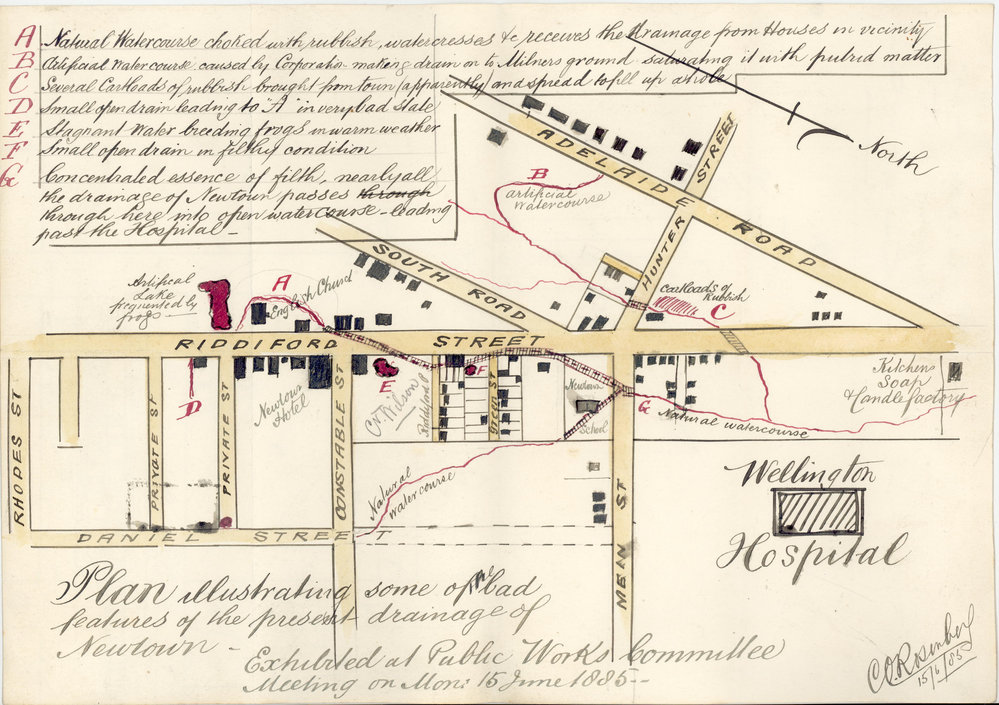 A Natural Watercourse choked with rubbish, watercresses &c receives the drainage from Houses in vicinity
B Artificial Watercourse caused by Corporation making drain on to Milners ground saturating it with putrid matter
C Several Cartloads of rubbish brought from town (apparently) and spread to fill up a hole
D Small open drain leading to "A" in very bad state
E Stagnant Water breeding frogs in warm weather
F Small open drain in filthy condition
G Concentrated essence of filth, nearly all
the drainage of Newtown passes through
through here into open watercourse - leading
past the Hospital -
North
ADELAIDE ROAD
HUNTER STREET
B
artificial
Watercourse
SOUTH ROAD
Artifical
Lake
frequented by
frogs
A
English Church
Cartloads of
Rubbish
C
RIDDIFORD STREET
RHODES ST
PRIVAT ST
D
PRIVATE ST
Newtown
Hotel
CONSTABLE ST
E
Wilson
F
Green St
Newtown
School
G
Natural watercourse
Kitchens
Soap
& Candle factory
Natural
watercourse
MEIN ST
DANIEL STREET
Wellington
Hospital
Plan illustrating some of the bad
features of the present drainage of
Newtown -
Exhibited at Public Works Committee
Meeting on Mon: 15 June 1885 --
15/6/85